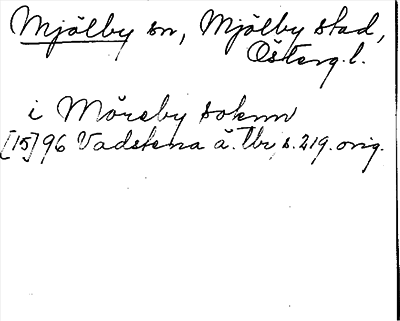 Mjölby sn, Mjölby stad,
Österg. l.
i Mörsby soknn
[15]96 Vadstena ä. tbr s. 219. orig.